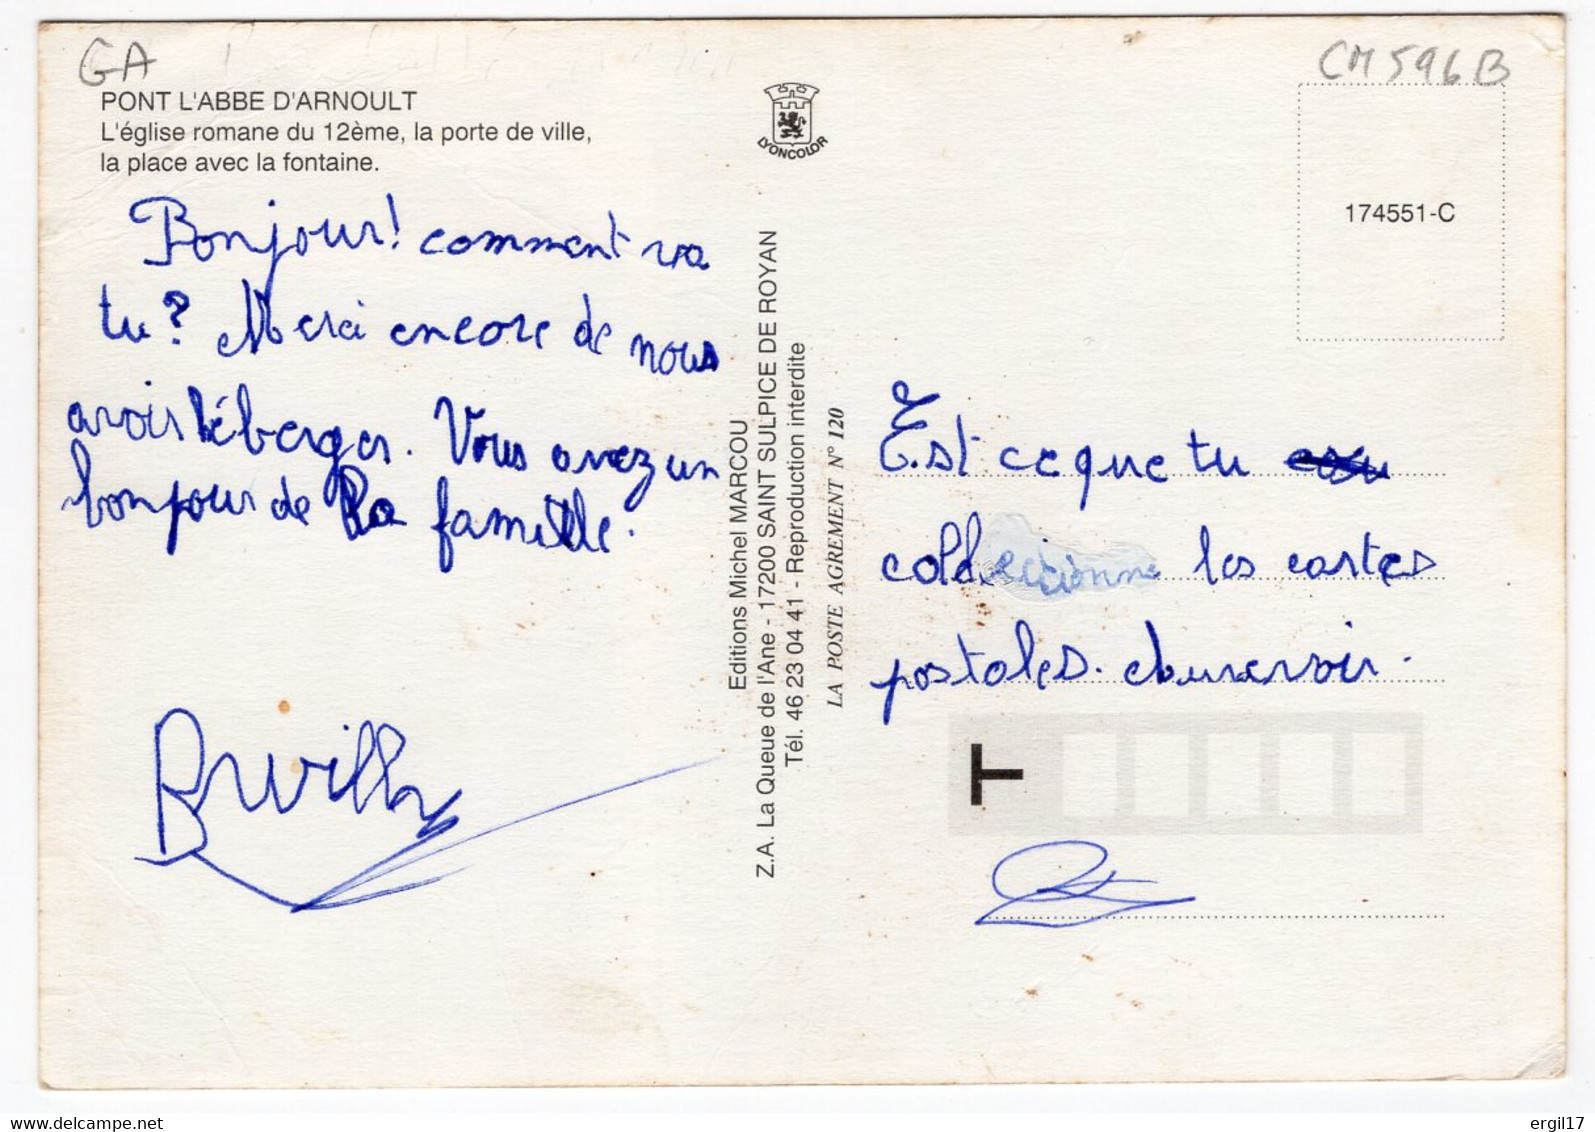 GA
CM 596B
PONT L'ABBE D'ARNOULT
L'église romane du 12ème, la porte de ville,
la place avec la fontaine.
LYONCOLOR
174551-C
Bonjour! comment va
tu? Merci encore de nous
avoir héberger. Vous avez un
bonjour de la famille.
Editions Michel MARCOU
Z.A. La Queue de l'Ane - 17200 SAINT SULPICE DE ROYAN
Tél. 46 23 04 41 - Reproduction interdite
LA POSTE AGREMENT N° 120
Est ce que tu
collectionne les cartes
postales.
T
delcampe.net
ergil17